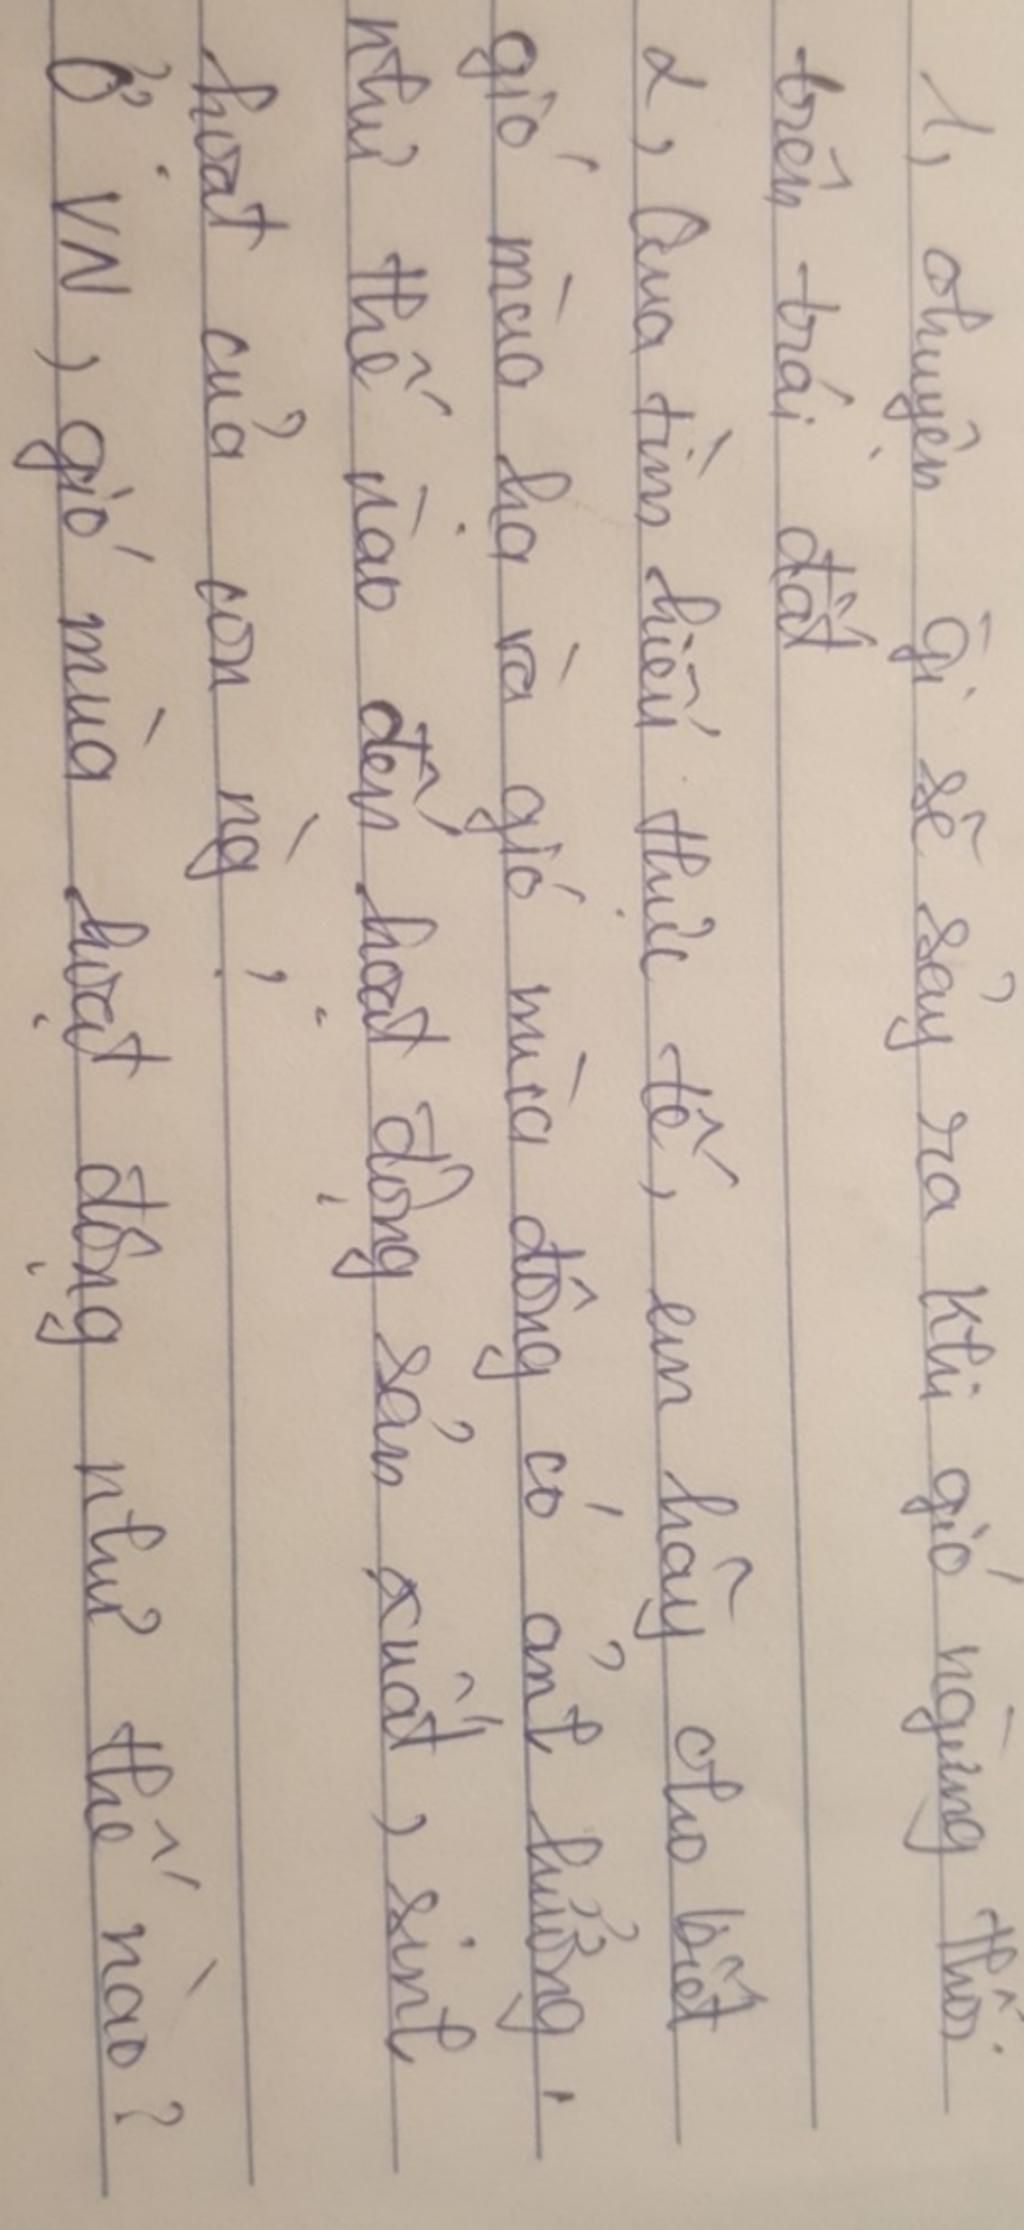 1, chuyện gì sẽ sảy ra khi gió ngừng thổi
trên trái đất
2, Qua tìm hiểu thực tế, em hãy cho biết
gió mùa hạ và gió mùa đông có ảnh hưởng
như thế nào đến hoạt động sản xuất, sinh
hoạt của con ng`,
Ở VN, gió mùa hoạt động như thế nào?